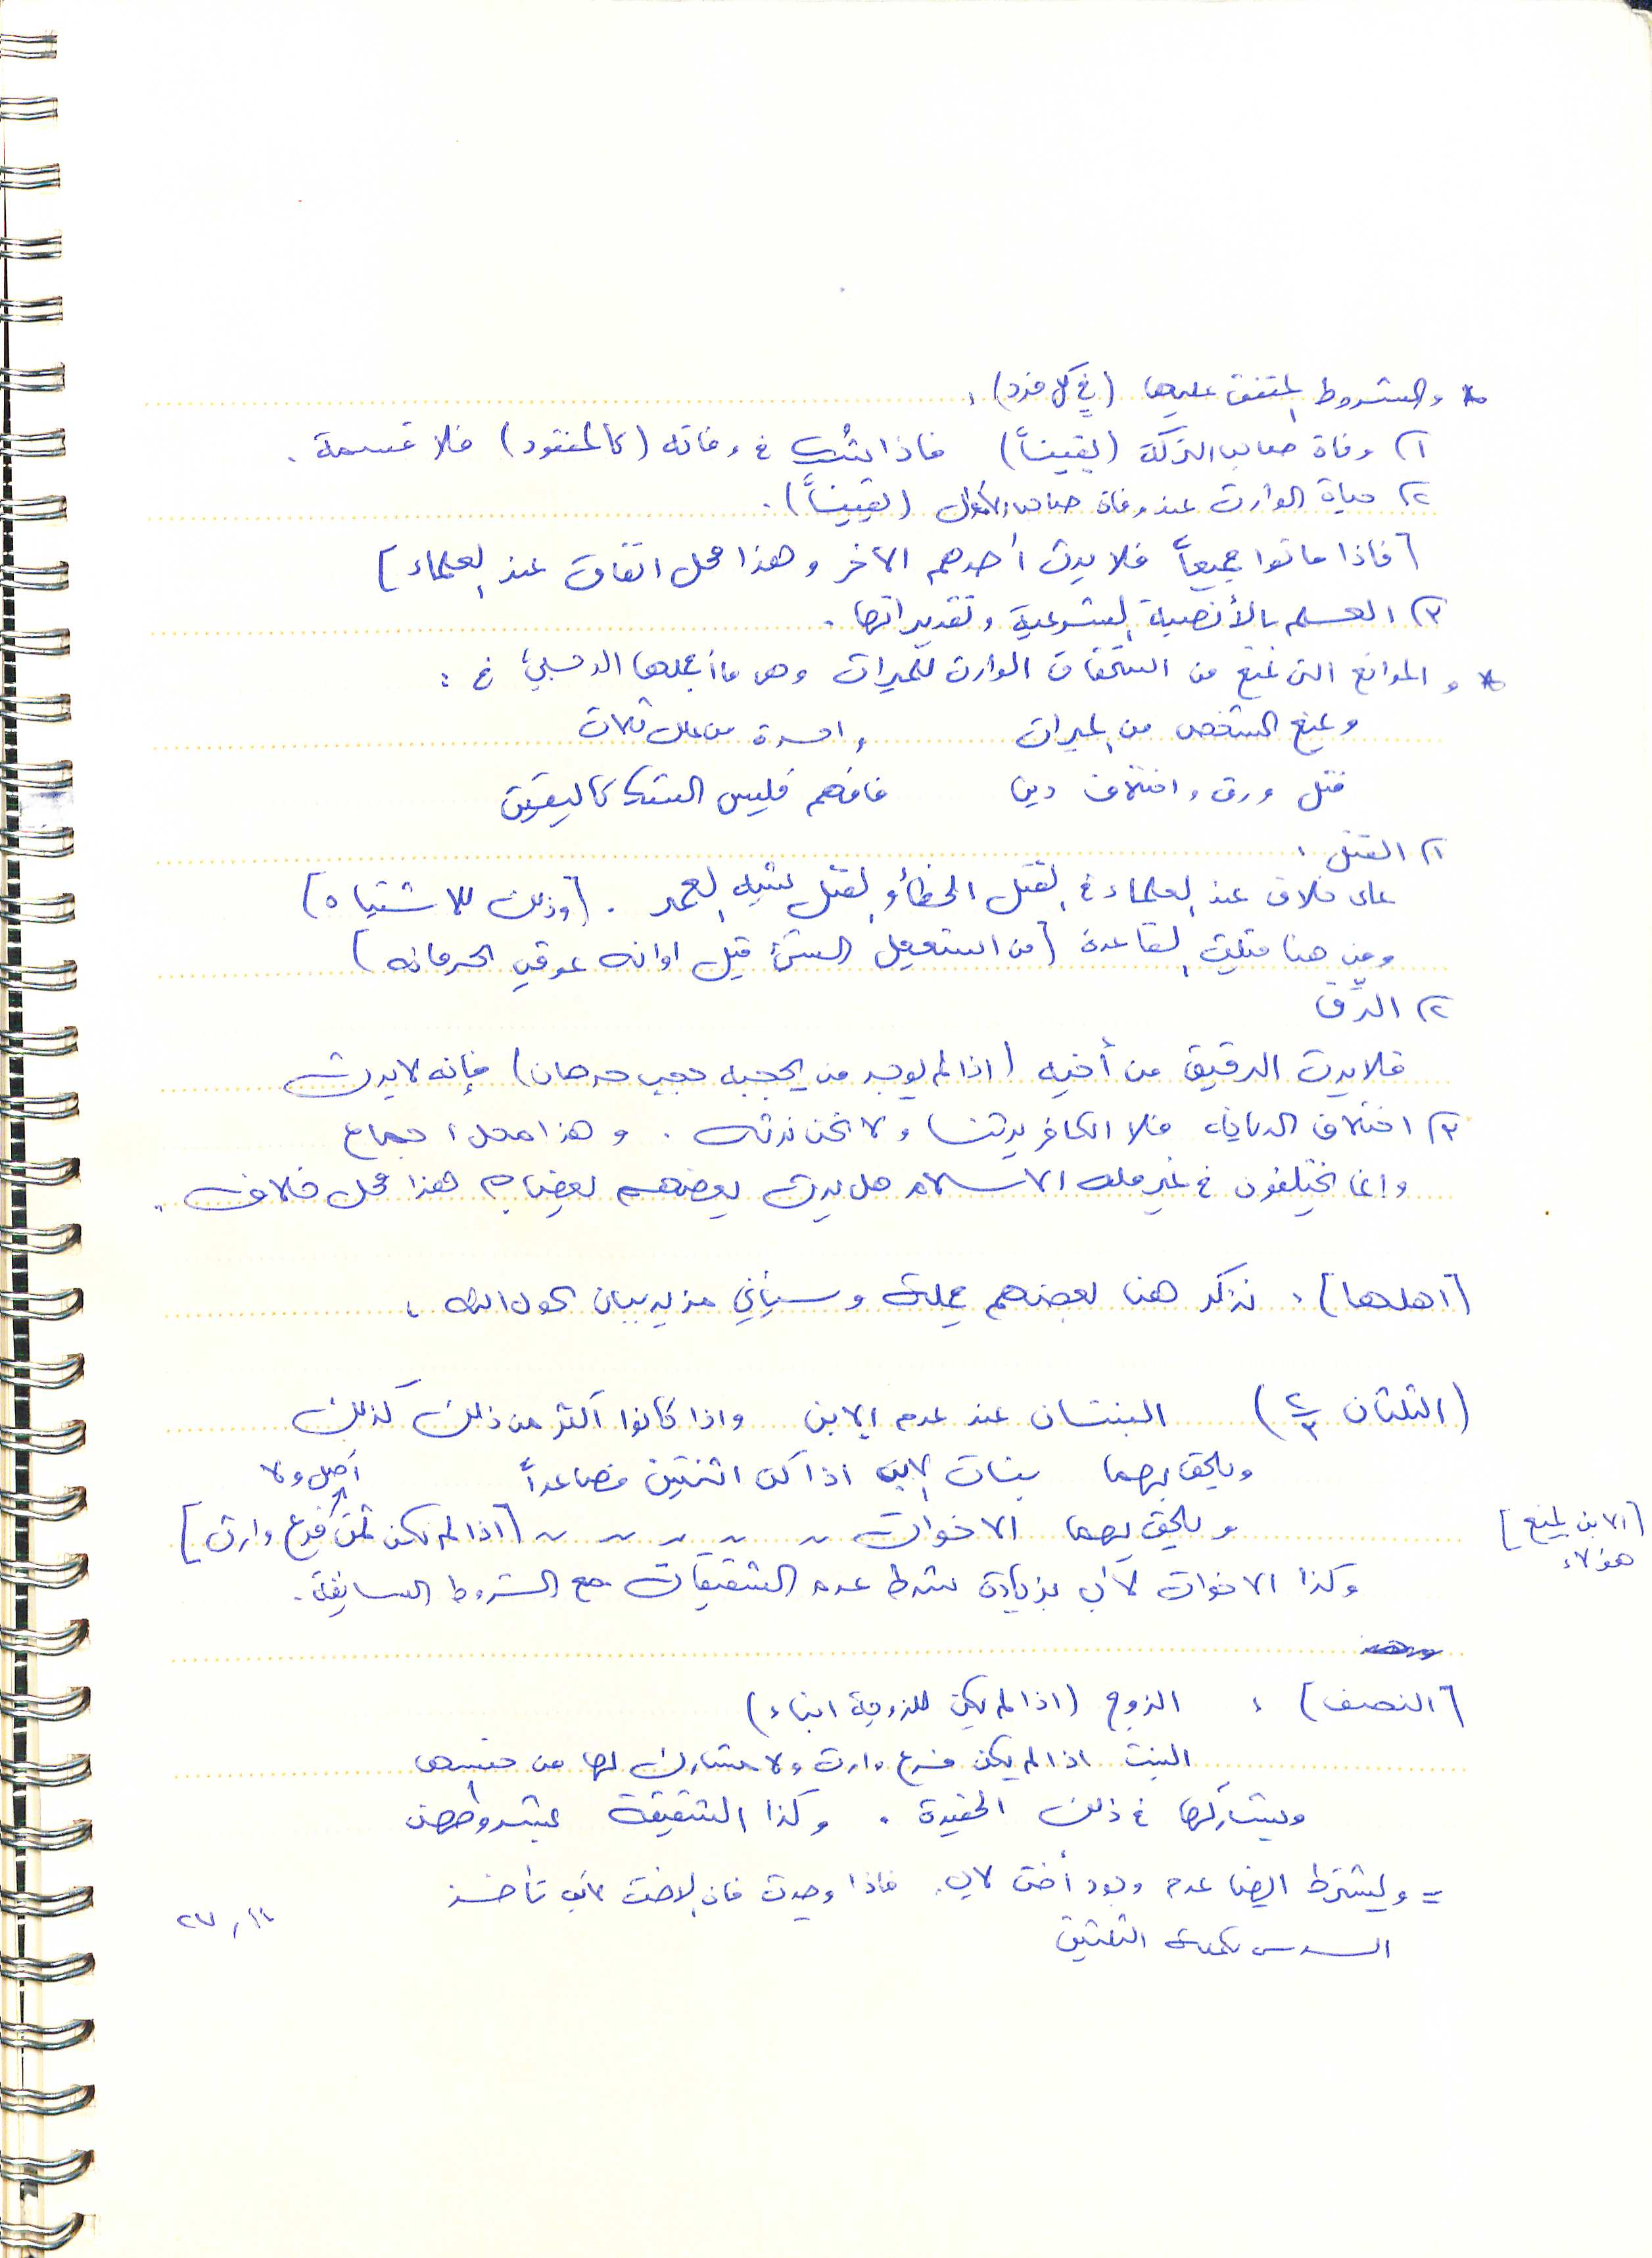 * والشروط المتفق عليها (في كل فرد) :
١) وفاة صاحب التركة (يقيناً) فاذا شُك في وفاته (كالمفقود) فلا قسمة .
٢) حياة الوارث عند وفاة صاحب الأموال (يقيناً) .
[فاذا ماتوا جميعاً فلا يرث أحدهم الآخر وهذا محل اتفاق عند العلماء]
٣) العلم بالأنصبة الشرعية وتقديراتها .
* و الموانع التي تمنع من استحقاق الوارث للميراث وهي ما أجملها الرحبيُّ في :
ويمنع الشخص من الميراث واحدة من علل ثلاث
قتل ورق واختلاف دين فافهم فليس الشك كاليقين
١) القتل :
على خلاف عند العلماء في القتل الخطأ والقتل شبه العمد . [وذلك للاشتباه]
ومن هنا قيلت القاعدة [من استعجل الشئ قبل اوانه عوقب بحرمانه]
٢) الرِّق
فلا يرث الرقيق من أخيه (اذا لم يوجد من يحجبه حجب حرمان) فإنه لا يرث
٣) اختلاف الديانة فلا الكافر يرثنا ولا نحن نرثه . وهذا محل اجماع
وإنما يختلفون في غير ملة الاسلام هل يرث بعضهم بعضاً ؟ هذا محل خلاف .
[اهلها] : نذكر هنا بعضهم جملة وسيأتي مزيد بيان بحول الله .
(الثلثان ٢/٣) البنتان عند عدم الابن واذا كانوا أكثر من ذلك كذلك
ويلحق بهما بنات الابن اذا كن اثنتين فصاعداً
ويلحق بهما الاخوات ~ ~ ~ ~ ~ [اذا لم يكن ثمّ أصل ولا فرع وارث]
[الابن يمنع هؤلاء]
وكذا الاخوات لأب بزيادة شرط عدم الشقيقات مع الشروط السابقة .
[النصف] : الزوج (اذا لم يكن للزوجة ابناء)
البنت اذا لم يكن فرع وارث ولا مشارك لها من جنسها
ويشاركها في ذلك الحفيدة . وكذا الشقيقة بشروطهن
= ويشترط ايضا عدم وجود أخت لأب . فاذا وجدت فان الاخت لأب تأخذ
السدس تكملة الثلثين